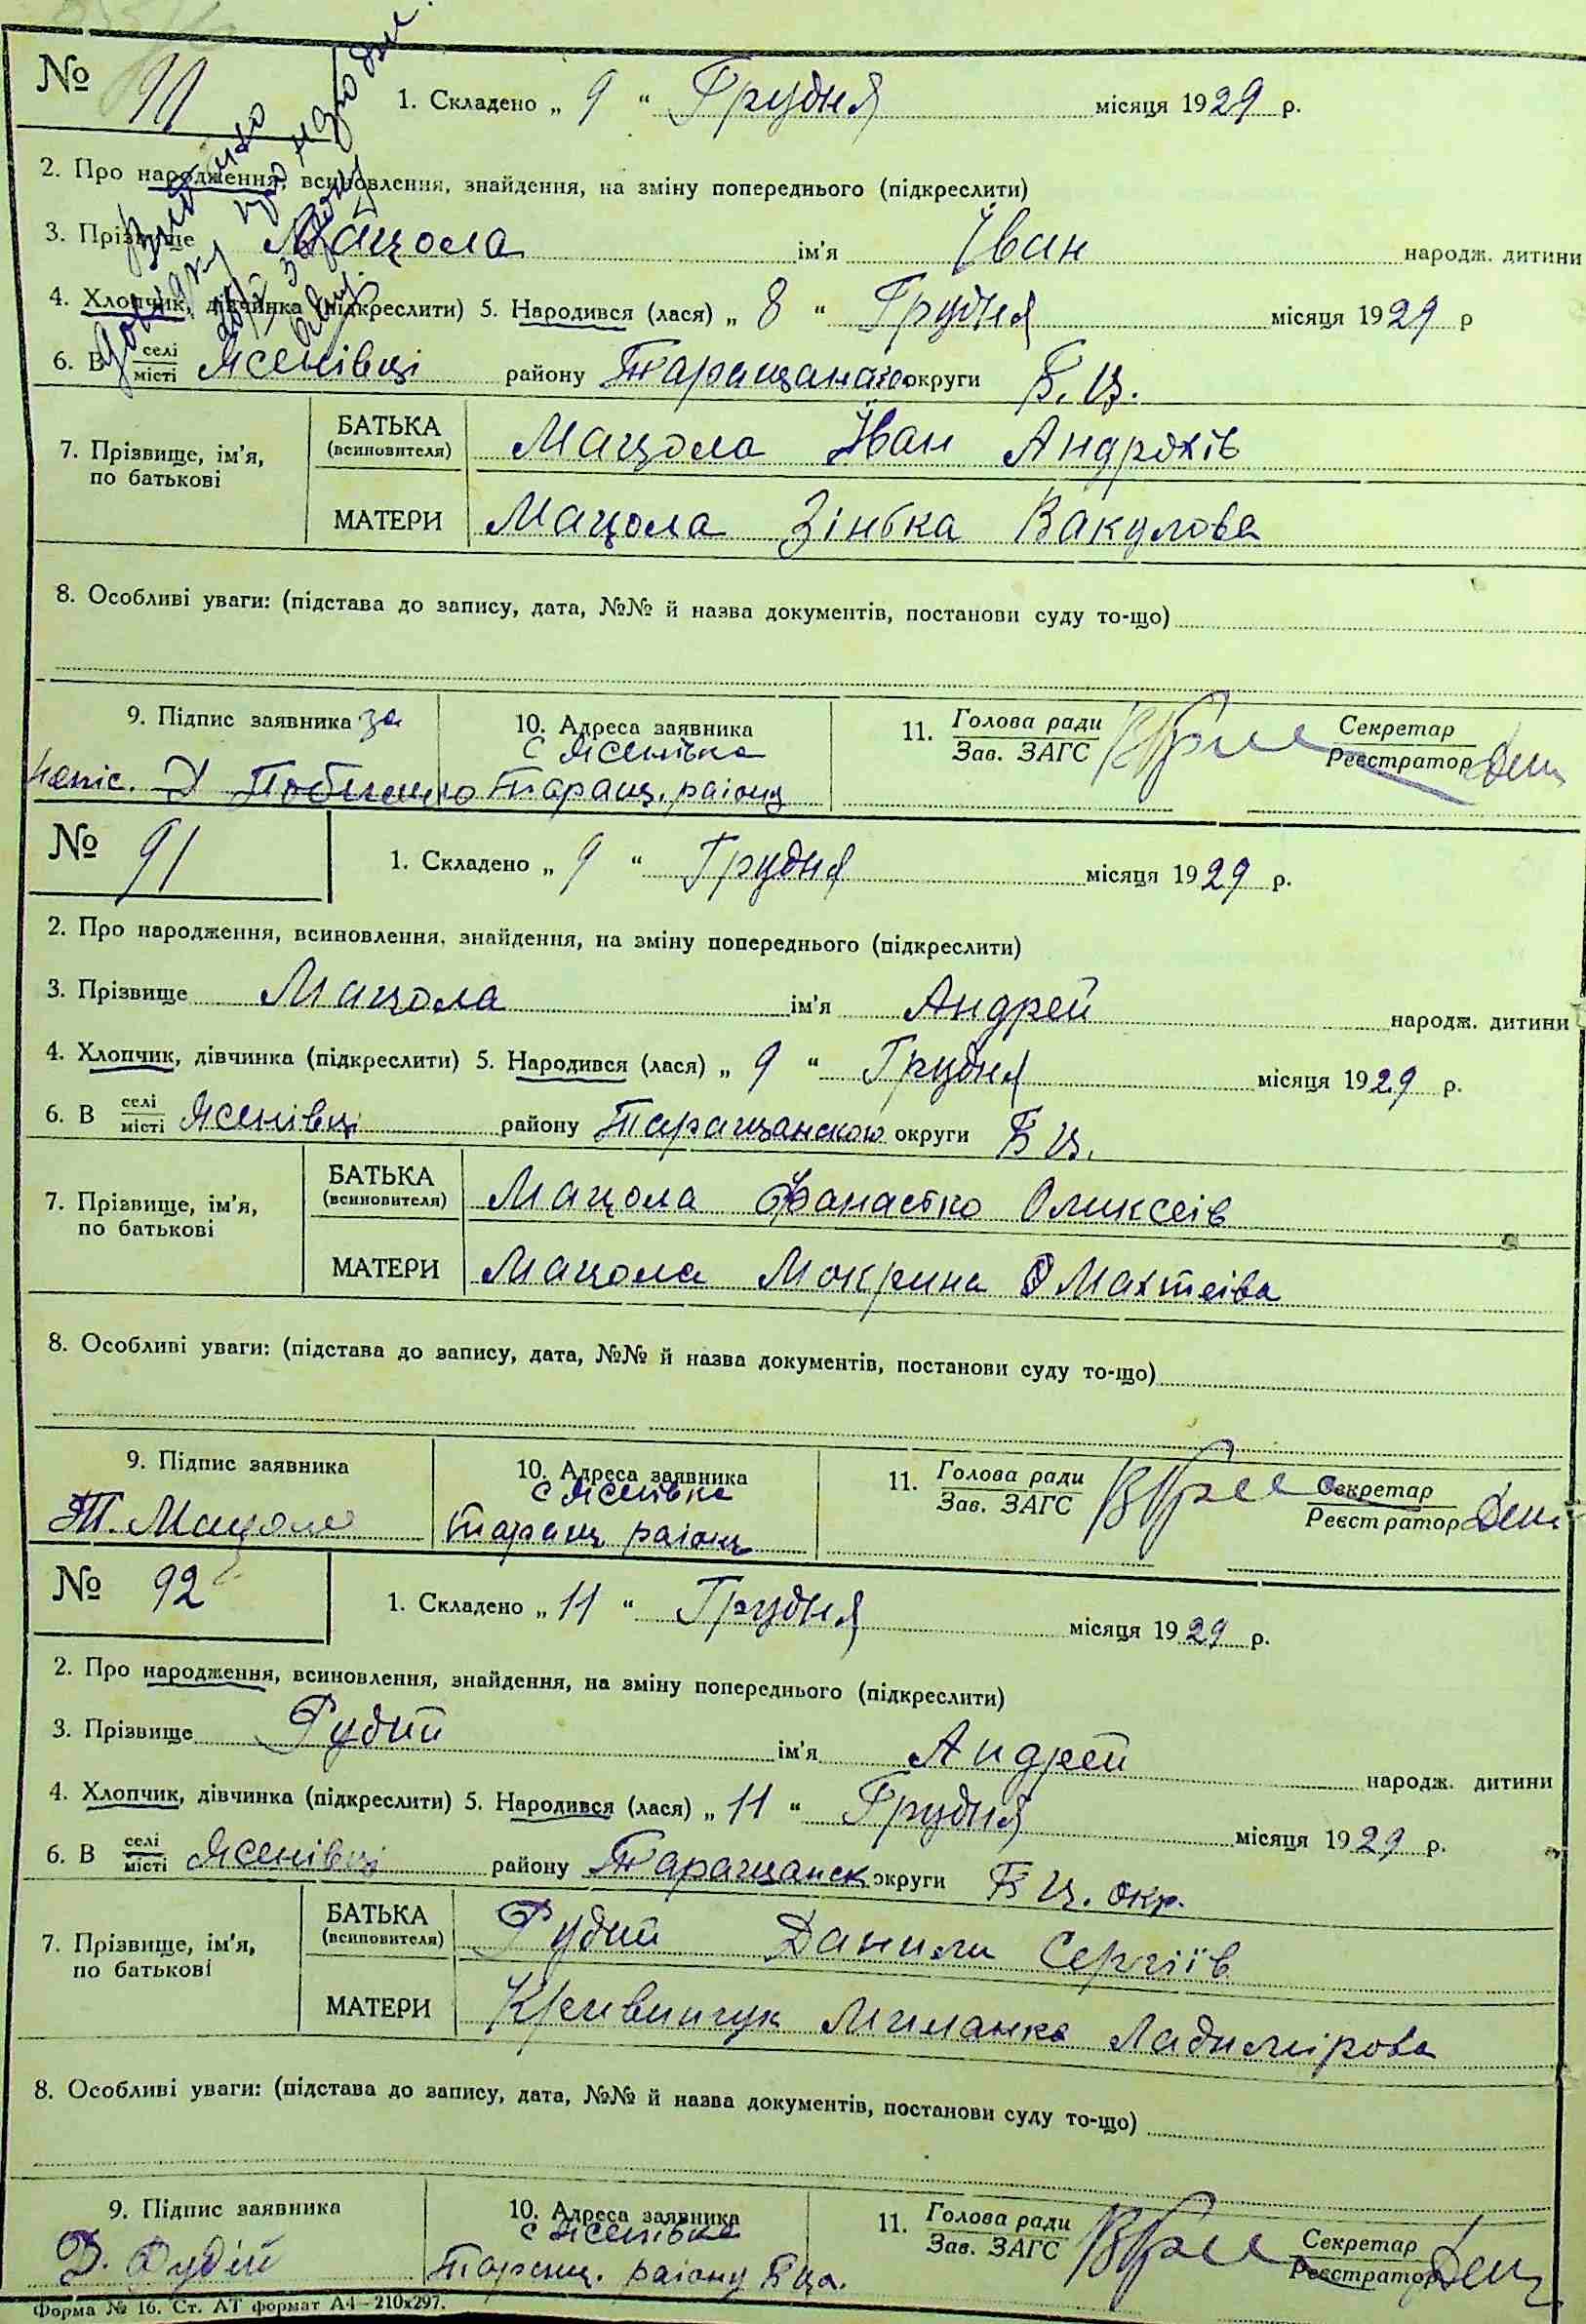 № 1. Складено „ 9 “ Грудня місяця 1929 р.
2. Про народження, всиновлення, знайдення, на зміну попереднього (підкреслити)
3. Прізвище Мацола ім'я Іван народж. дитини
4. Хлопчик, дівчинка (підкреслити) 5. Народився (лася) „ 8 “ Грудня місяця 1929 р
6. В селі/місті Ясенівці району округи Б. Ц.
7. Прізвище, ім'я, по батькові
БАТЬКА (всиновителя) Мацола Іван Андріхів
МАТЕРИ Мацола Зінька Вакулова
8. Особливі уваги: (підстава до запису, дата, №№ й назва документів, постанови суду то-що)
9. Підпис заявника за 10. Адреса заявника 11. Голова ради/Зав. ЗАГС Секретар/Реєстратор
с Ясенівка
Таращ. району
№ 91 1. Складено „ 9 “ Грудня місяця 1929 р.
2. Про народження, всиновлення, знайдення, на зміну попереднього (підкреслити)
3. Прізвище Мацола ім'я Андрей народж. дитини
4. Хлопчик, дівчинка (підкреслити) 5. Народився (лася) „ 9 “ Грудня місяця 1929 р.
6. В селі/місті Ясенівці району Таращанского округи Б Ц.
7. Прізвище, ім'я, по батькові
БАТЬКА (всиновителя) Мацола Фанастко Оликсеів
МАТЕРИ Мацола Мокрина Махтеіва
8. Особливі уваги: (підстава до запису, дата, №№ й назва документів, постанови суду то-що)
9. Підпис заявника 10. Адреса заявника 11. Голова ради/Зав. ЗАГС Секретар/Реєстратор
с Ясенівка
Т. Мацола Таращ району
№ 92 1. Складено „ 11 “ Грудня місяця 1929 р.
2. Про народження, всиновлення, знайдення, на зміну попереднього (підкреслити)
3. Прізвище Рудий ім'я Андрей народж. дитини
4. Хлопчик, дівчинка (підкреслити) 5. Народився (лася) „ 11 “ Грудня місяця 1929 р.
6. В селі/місті Ясенівці району Таращанск округи Б Ц. окр.
7. Прізвище, ім'я, по батькові
БАТЬКА (всиновителя) Рудий Данили Сергіїв
МАТЕРИ Кривинчук Миланка Ладимірова
8. Особливі уваги: (підстава до запису, дата, №№ й назва документів, постанови суду то-що)
9. Підпис заявника 10. Адреса заявника 11. Голова ради/Зав. ЗАГС Секретар/Реєстратор
с Ясенівка
Д. Рудій Таращ. району Бца.
Форма № 16. Ст. АТ формат А4—210х297.